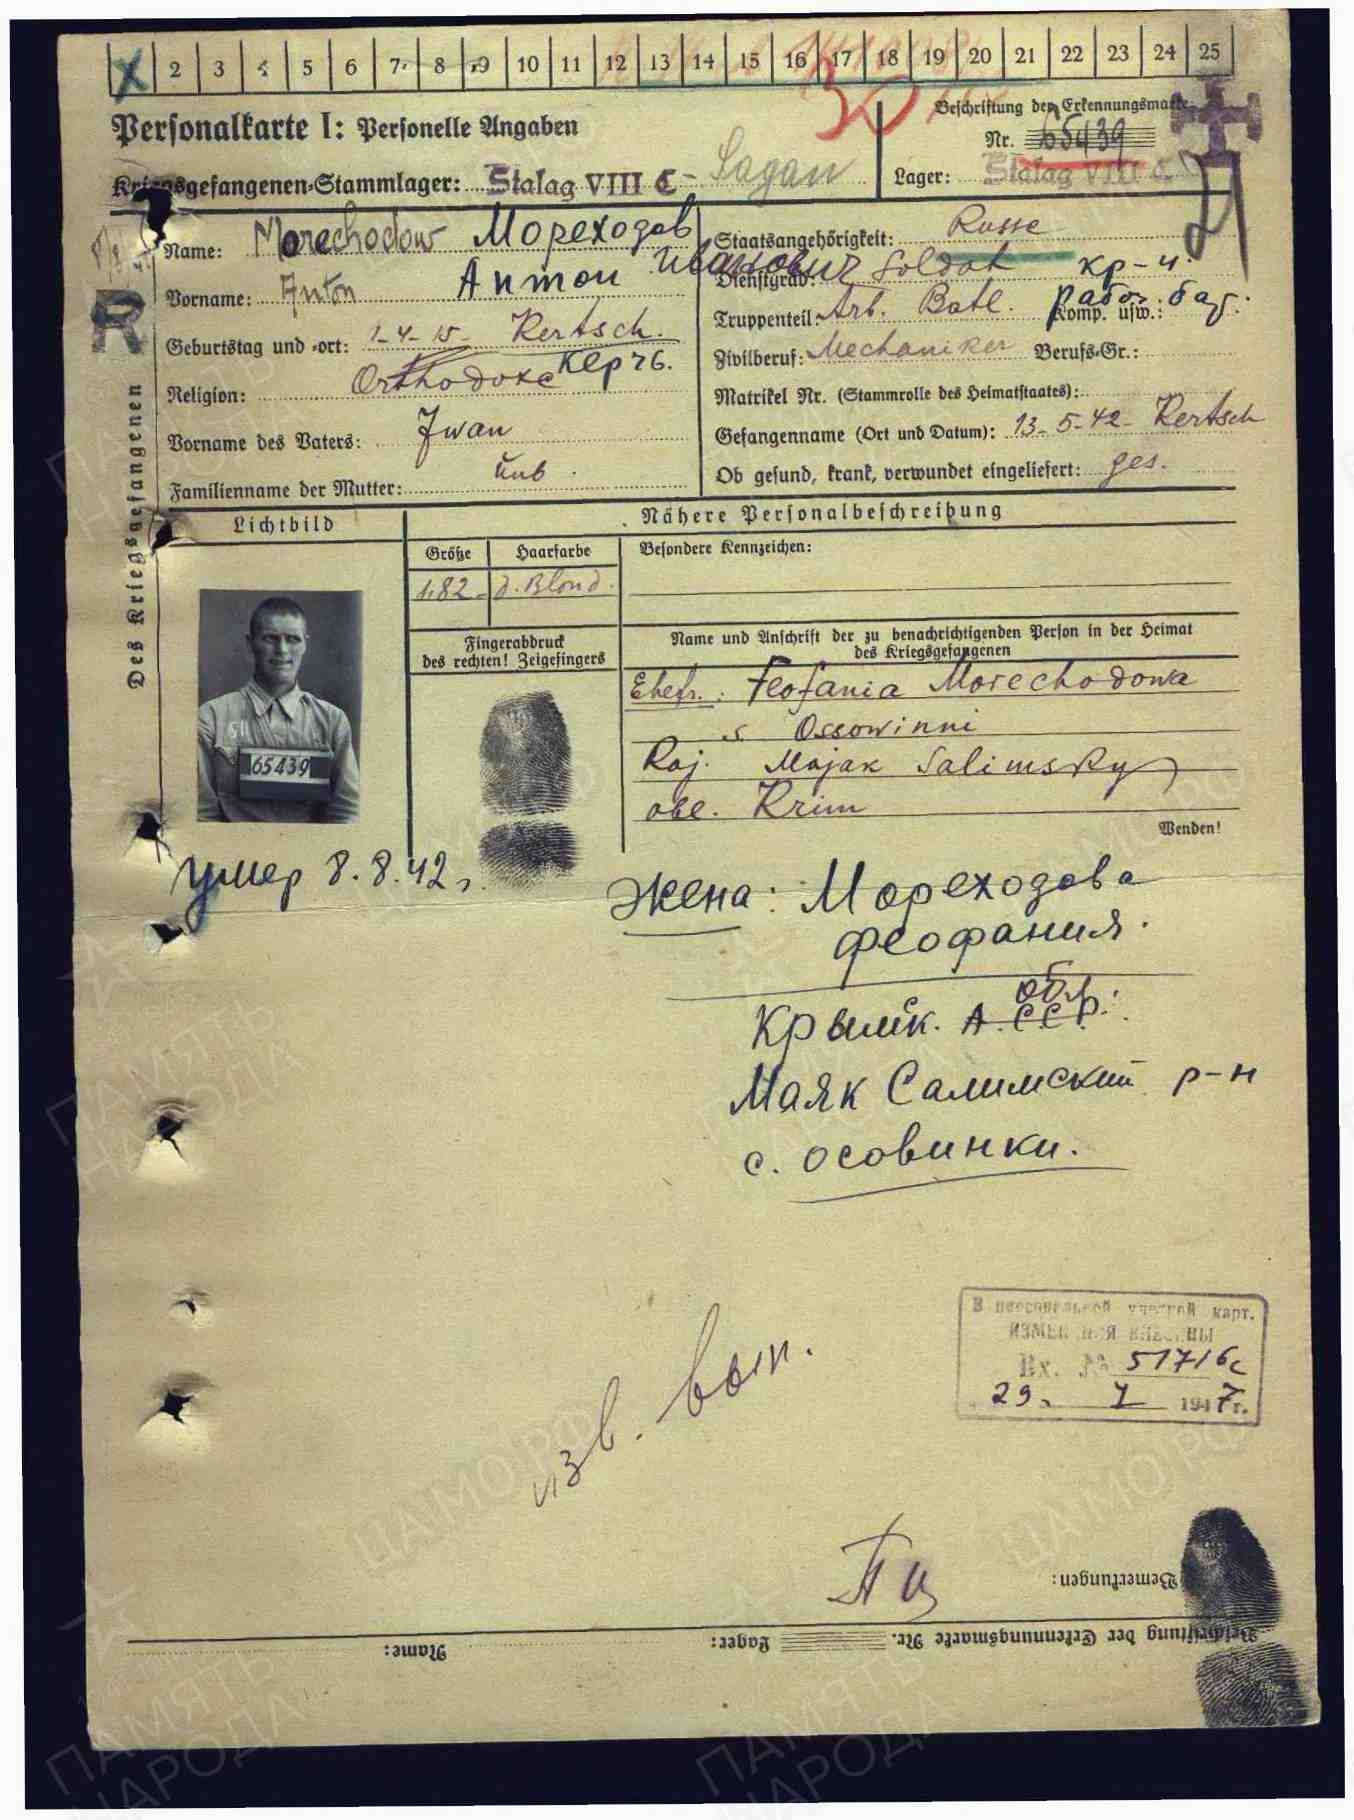 X 2 3 4 5 6 7 8 9 10 11 12 13 14 15 16 17 18 19 20 21 22 23 24 25
Personalkarte I: Personelle Angaben
Beschriftung der Erkennungsmarke
Nr. 65439
Kriegsgefangenen-Stammlager: Stalag VIII C - Sagan
Lager: Stalag VIII C
Name: Morechodow Мореходов
Vorname: Anton Антон Иванович
Geburtstag und -ort: 1-4-15- Kertsch.
Керчь.
Religion: Orthodoxe
Vorname des Vaters: Iwan
Familienname der Mutter: unb.
Staatsangehörigkeit: Russe
Dienstgrad: Soldat кр-ц
Truppenteil: Arb. Batl. Komp. usw.: рабоч. бат.
Zivilberuf: Mechaniker Berufs-Gr.:
Matrikel Nr. (Stammrolle des Heimatstaates):
Gefangenname (Ort und Datum): 13-5-42- Kertsch
Ob gesund, krank, verwundet eingeliefert: ges.
R
Des Kriegsgefangenen
Lichtbild
65439
Nähere Personalbeschreibung
Größe Haarfarbe Besondere Kennzeichen:
1.82- d. Blond.
Fingerabdruck
des rechten! Zeigefingers
Name und Anschrift der zu benachrichtigenden Person in der Heimat
des Kriegsgefangenen
Ehefr.: Feofania Morechodowa
s. Ossowinni
Raj. Majak Salimsky
obl. Krim
Wenden!
умер 8.8.42 г.
Жена: Мореходова
Феофания.
обл.
Крымск. А.С.С.Р.
Маяк Салимский р-н
с. Осовинки.
В персональной учетной карт.
ИЗМЕНЕНИЯ ВНЕСЕНЫ
Вх. № 51716с
29. 7 1947 г.
изв. вып.
Bemerkungen:
Beschriftung der Erkennungsmarke Nr. Lager: Name:
ПАМЯТЬ НАРОДА
ЦАМО РФ